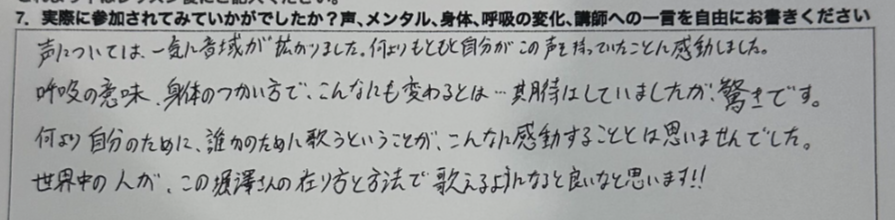 7. 実際に参加されてみていかがでしたか？声、メンタル、身体、呼吸の変化、講師への一言を自由にお書きください
声については、一気に音域が拡がりました。何よりもともと自分がこの声を持っていたことに感動しました。
呼吸の意味、身体のつかい方で、こんなにも変わるとは…期待はしていましたが、驚きです。
何より自分のために、誰かのために歌うということが、こんなに感動することとは思いませんでした。
世界中の人が、この堀澤さんの在り方と方法で歌えるようになると良いなと思います!!